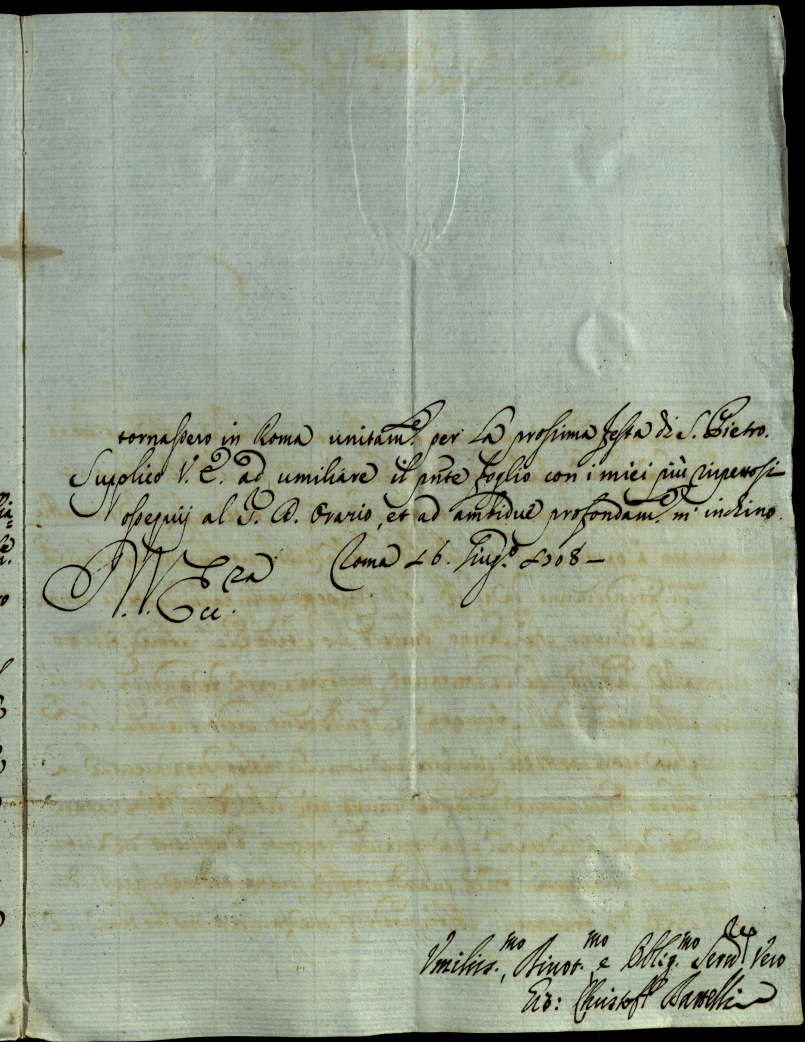 tornassero in Roma unitam.e per La prossima festa di S. Pietro.
Supplico V. E. ad umiliare il pnte foglio con i miei più rispettosi
ossequij al S. D. Orazio, et ad ambidue profondam.e m' inchino.
Roma 16. Giug.o 1708 –
Ecc.
Umiliss.mo, Divot.mo e Obblig.mo Serv.re Vero
Gio: Christof.o Battelli